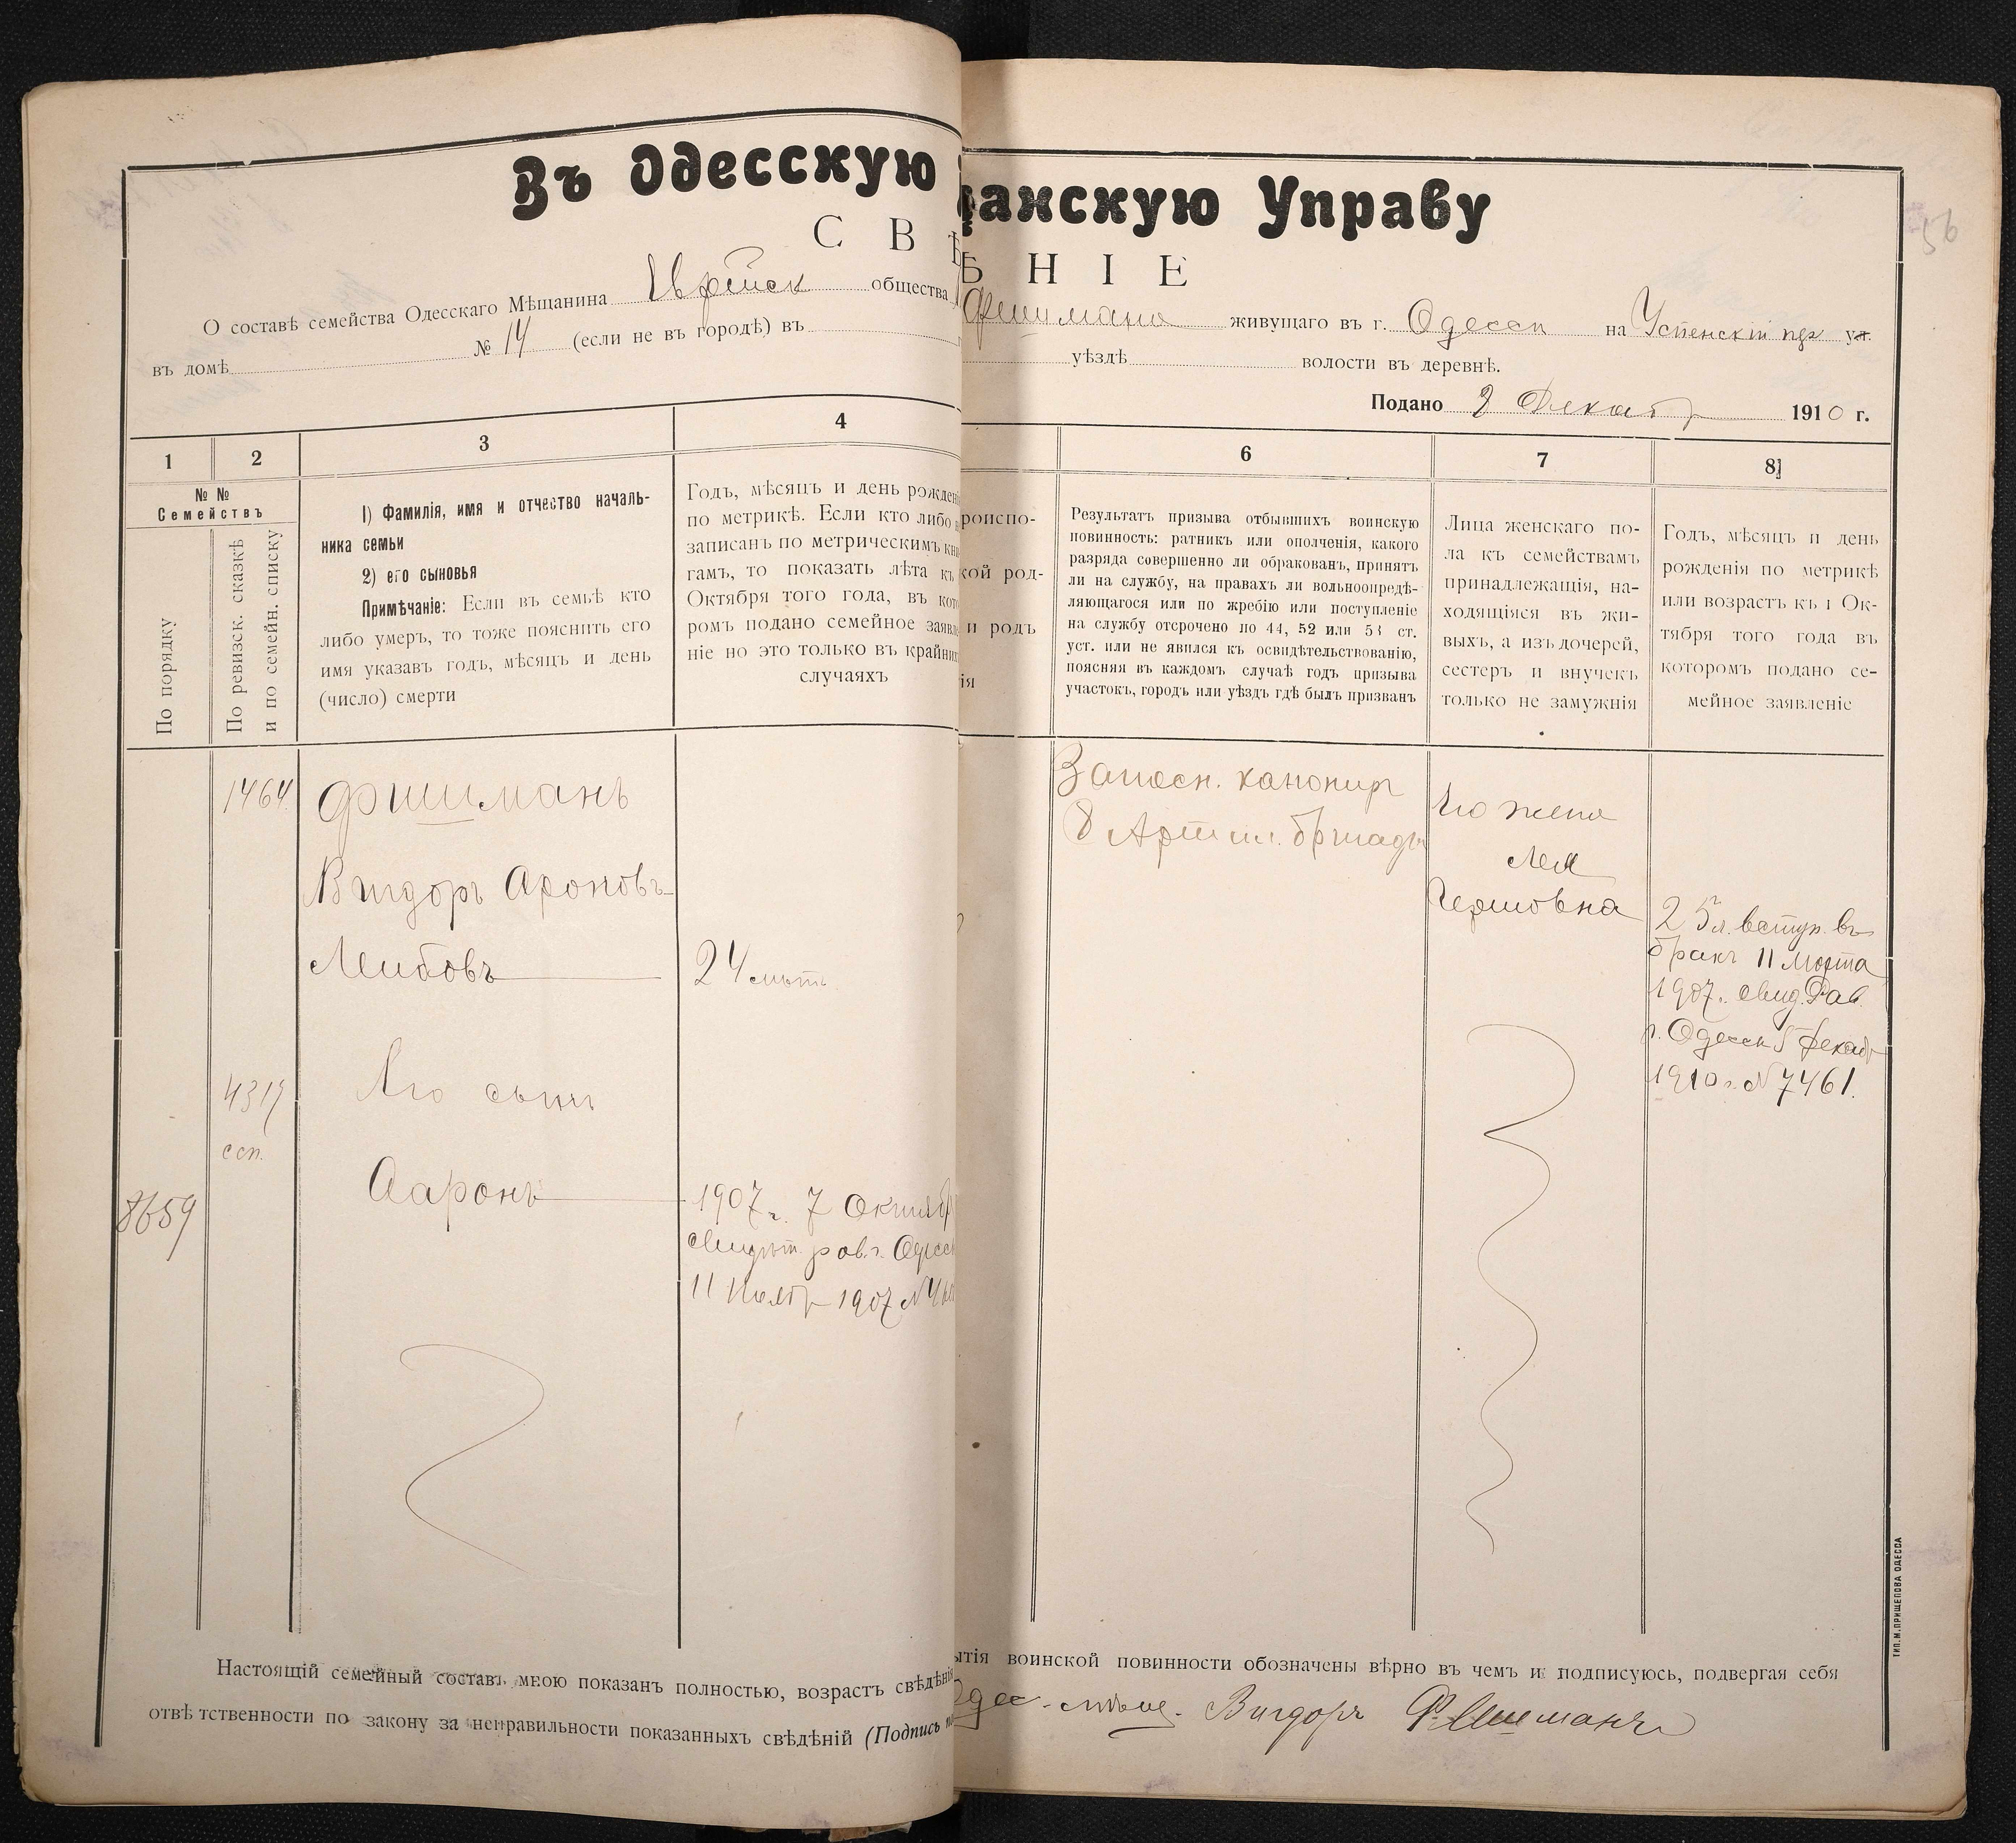 Въ Одесскую
щанскую Управу
56
С В Ѣ
Ѣ Н І Е
О составѣ семейства Одесскаго Мѣщанина Еврейск общества Фишмана живущаго въ г. Одессѣ на Успенскій пер ул.
въ домѣ № 14 (если не въ городѣ) въ уѣздѣ волости въ деревнѣ.
Подано 8 Декабр 1910 г.
1
2
3
4
6
7
8
№ №
Семействъ
По порядку
По ревизск. сказкѣ
и по семейн. списку
1) Фамилія, имя и отчество началь-
ника семьи
2) его сыновья
Примѣчаніе: Если въ семьѣ кто
либо умеръ, то тоже пояснить его
имя указавъ годъ, мѣсяцъ и день
(число) смерти
Годъ, мѣсяцъ и день рожден
по метрикѣ. Если кто либо
записанъ по метрическимъ кни
гамъ, то показать лѣта къ
Октября того года, въ кото
ромъ подано семейное заявле
ніе но это только въ крайних
случаяхъ
роиспо-
кой род-
и родъ
ія
Результатъ призыва отбывшихъ воинскую
повинность: ратникъ или ополченія, какого
разряда совершенно ли обракованъ, принятъ
ли на службу, на правахъ ли вольноопредѣ-
ляющагося или по жребію или поступленіе
на службу отсрочено по 44, 52 или 53 ст.
уст. или не явился къ освидѣтельствованію,
поясняя въ каждомъ случаѣ годъ призыва
участокъ, городъ или уѣздъ гдѣ былъ призванъ
Лица женскаго по-
ла къ семействамъ
принадлежащія, на-
ходящіяся въ жи-
выхъ, а изъ дочерей,
сестеръ и внучекъ
только не замужнія
Годъ, мѣсяцъ и день
рожденія по метрикѣ
или возрастъ къ 1 Ок-
тября того года въ
которомъ подано се-
мейное заявленіе
1464
Фишманъ
Вигдоръ Ароновъ
Лейбовъ
24 лѣтъ
4319
ссп.
Его сынъ
Ааронъ
8659
1907 г. 7 Октябр
свидѣт. рав. г. Одесс
11 Ноябр 1907 №
Запасн. канонир
8 Артил. бригады
Его жена
Лея
Гершовна
25 л. вступ. въ
бракъ 11 Марта
1907 г. свид. Рав.
г. Одессы 5 Декабр
1910 г. № 7461.
Настоящій семейный составъ мною показанъ полностью, возрастъ свѣдѣнія
ытія воинской повинности обозначены вѣрно въ чемъ и подписуюсь, подвергая себя
отвѣтственности по закону за неправильности показанныхъ свѣдѣній (Подпись
Одес. мѣщ. Вигдоръ Фишманъ
ТИП. М. ПРИЩЕПОВА ОДЕССА